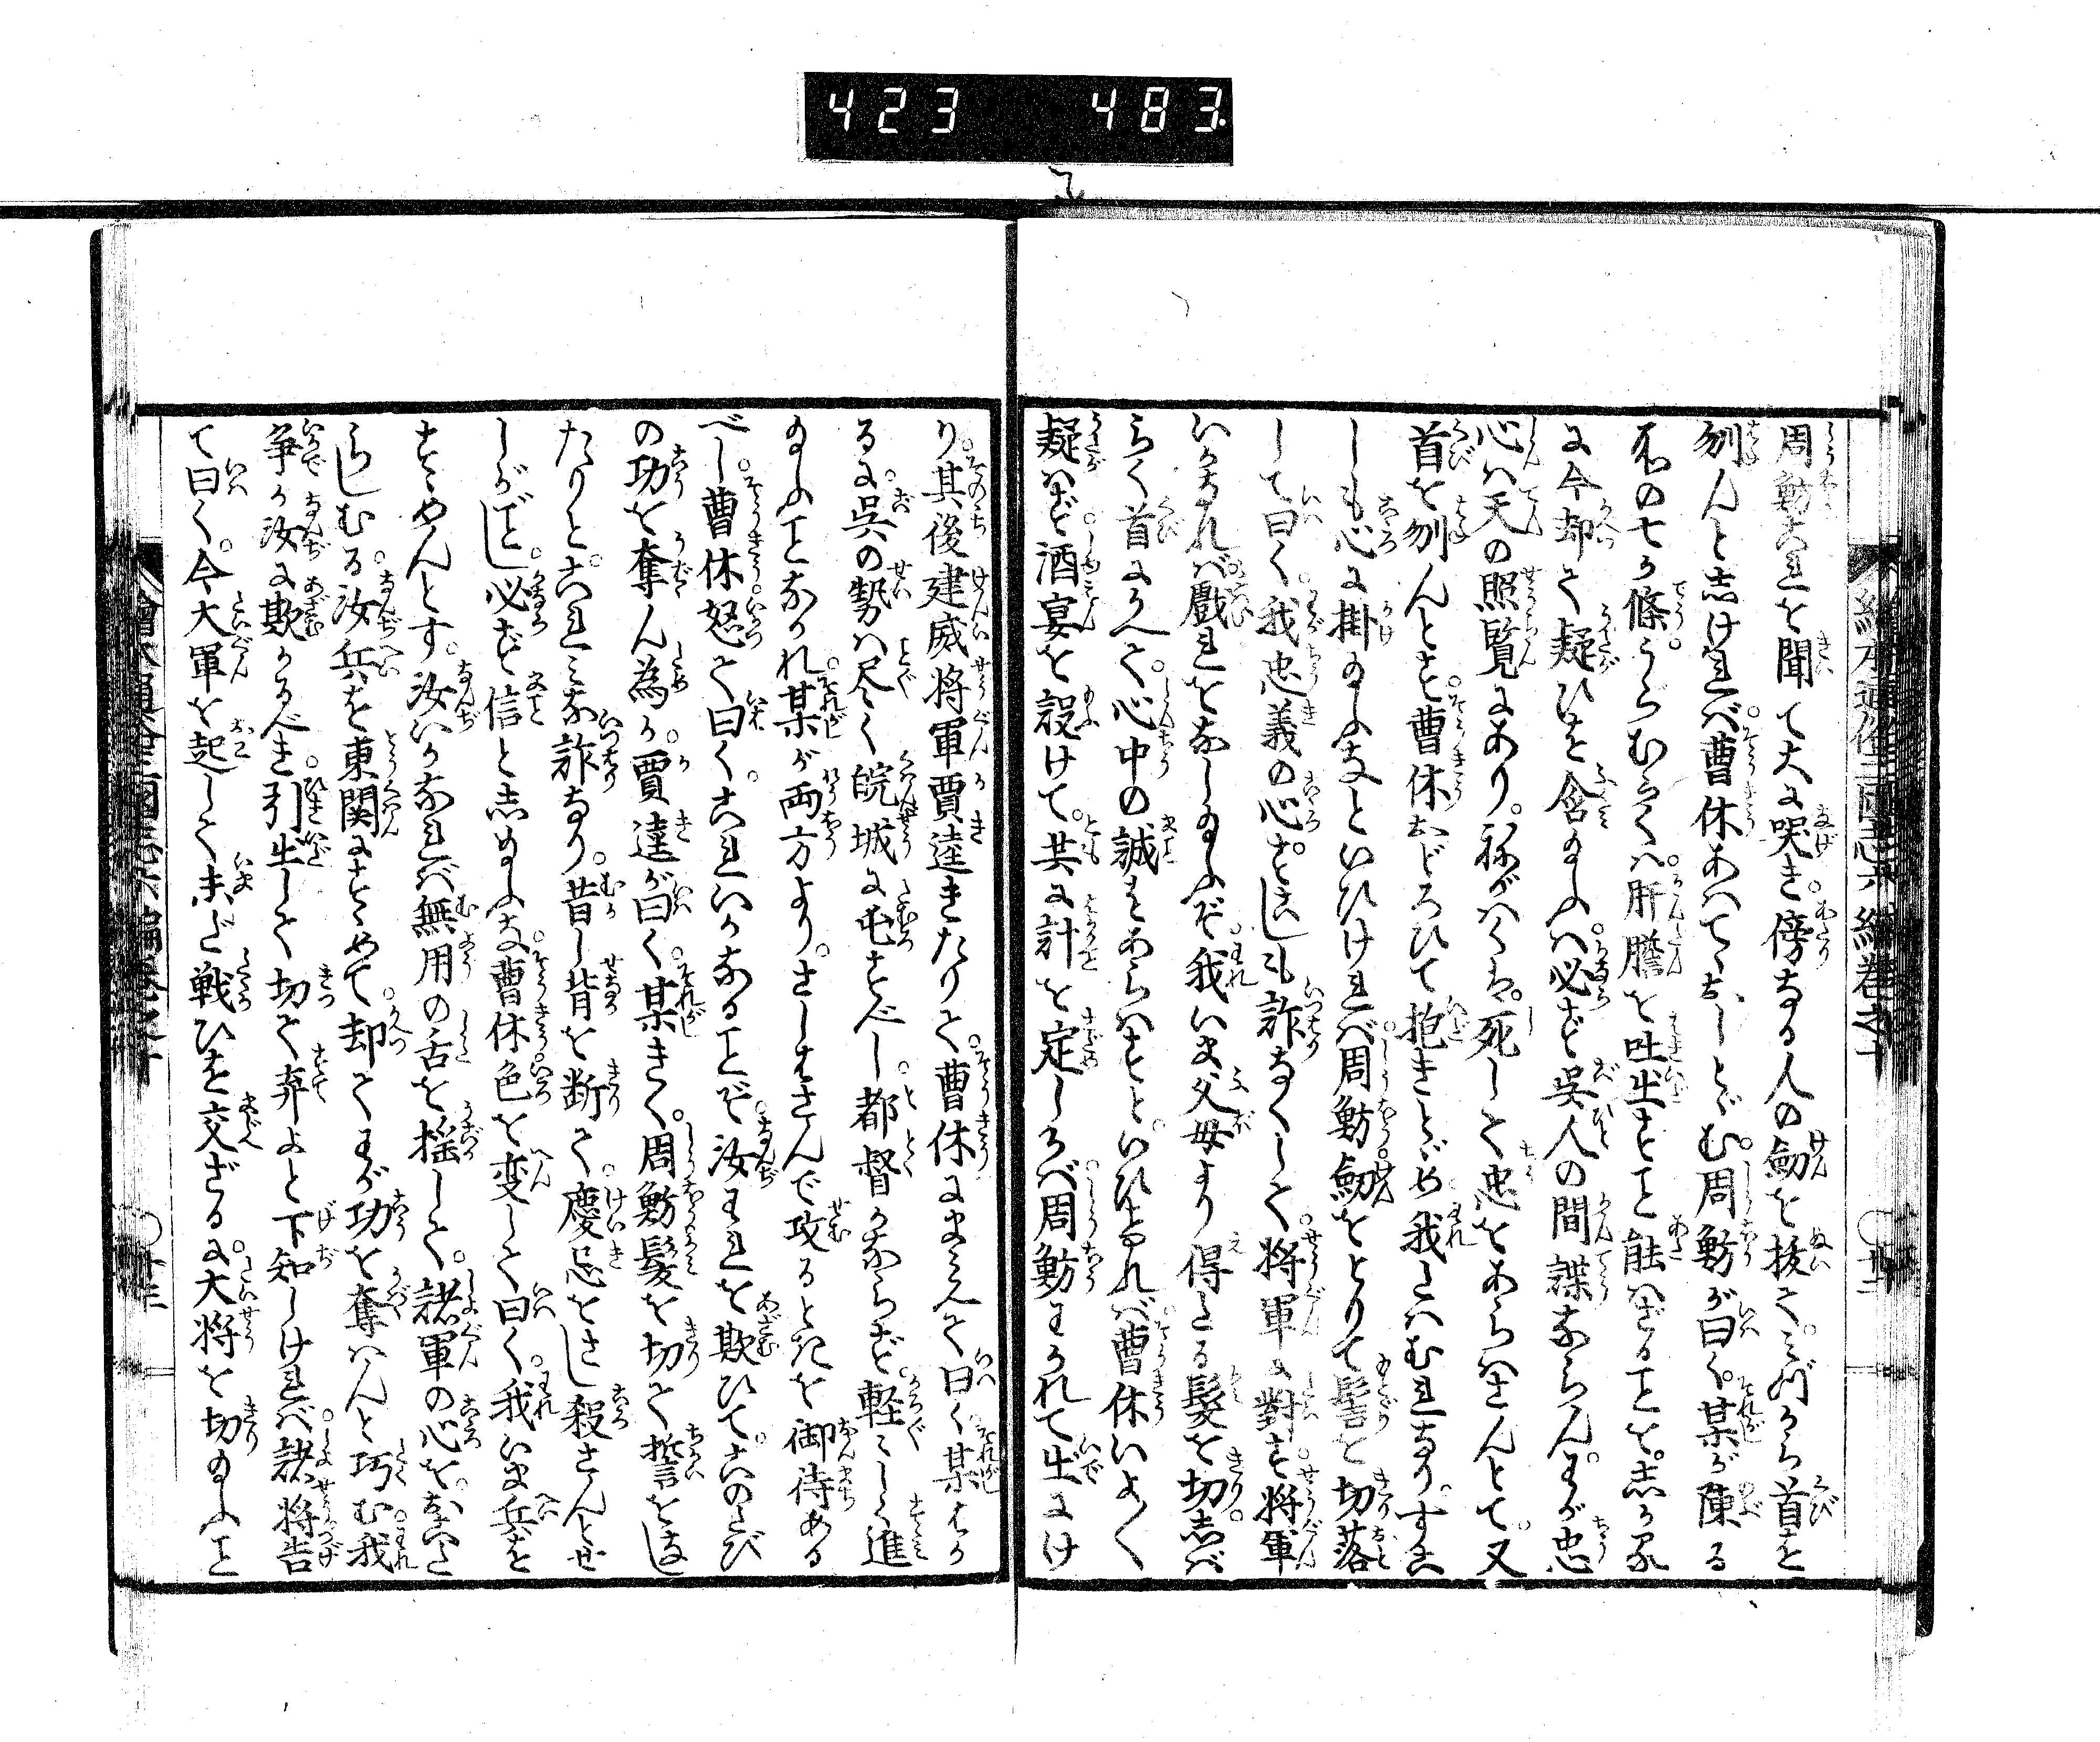 423 483
周魴これを聞て大に哭き。傍なる人の劔を抜て。みづから首を
刎んとしければ。曹休あはてゝおしとゞむ。周魴が曰く。某が陳る
所の七ヶ條。うらむらくハ。肝膽を吐出すこと能ハざることを。しかる
に今却て疑ひを含みたまふハ。必ず呉人の間諜ならん。わが忠
心ハ天の照覧にあり。ねがハくハ。死して忠をあらハさんとて。又
首を刎んとす。曹休おどろひて抱きとゞめ我たハむれなり。すこ
しも心に掛たまふなといひければ。周魴劔をとりて髻を切落
して曰く。我忠義の心。すこしも詐なくして。将軍に對す。将軍
いかなれバ戯れをなしたまふぞ。我いま父母より得たる髪を切。しバ
らく首にかへて。心中の誠をあらハすと。いひければ。曹休いよ〱
疑ハず酒宴を設けて。共に計を定しかバ。周魴わかれて出にけ
り。其後建威将軍賈逵きたりて。曹休にまみえて曰く某はか
るに。呉の勢ハ尽く皖城に屯すべし。都督かならず。軽〻しく進
たまふことなかれ。某が両方より。さしはさんで攻るときを御待ある
べし。曹休怒て曰く。これいかなることぞ。汝われを欺ひて。このたび
の功を奪ん為か。賈逵が曰く。某きく。周魴髪を切て誓をしま
たりと。これミな詐なり。昔し背を断て。慶忌をさし殺さんとせ
しがごとし。必ず信としたまふな。曹休色を変して曰く。我いま兵を
すゝめんとす。汝いかなれバ無用の舌を揺して。諸軍の心を。おこた
らしむる。汝兵を東関にとゞめて。却てわが功を奪ハんと巧む我
争か汝に欺かるべき。引出して切て弃よと下知しければ。諸将告
て曰く。今大軍を起して未だ戦ひを交ざるに。大将を切たまふこと